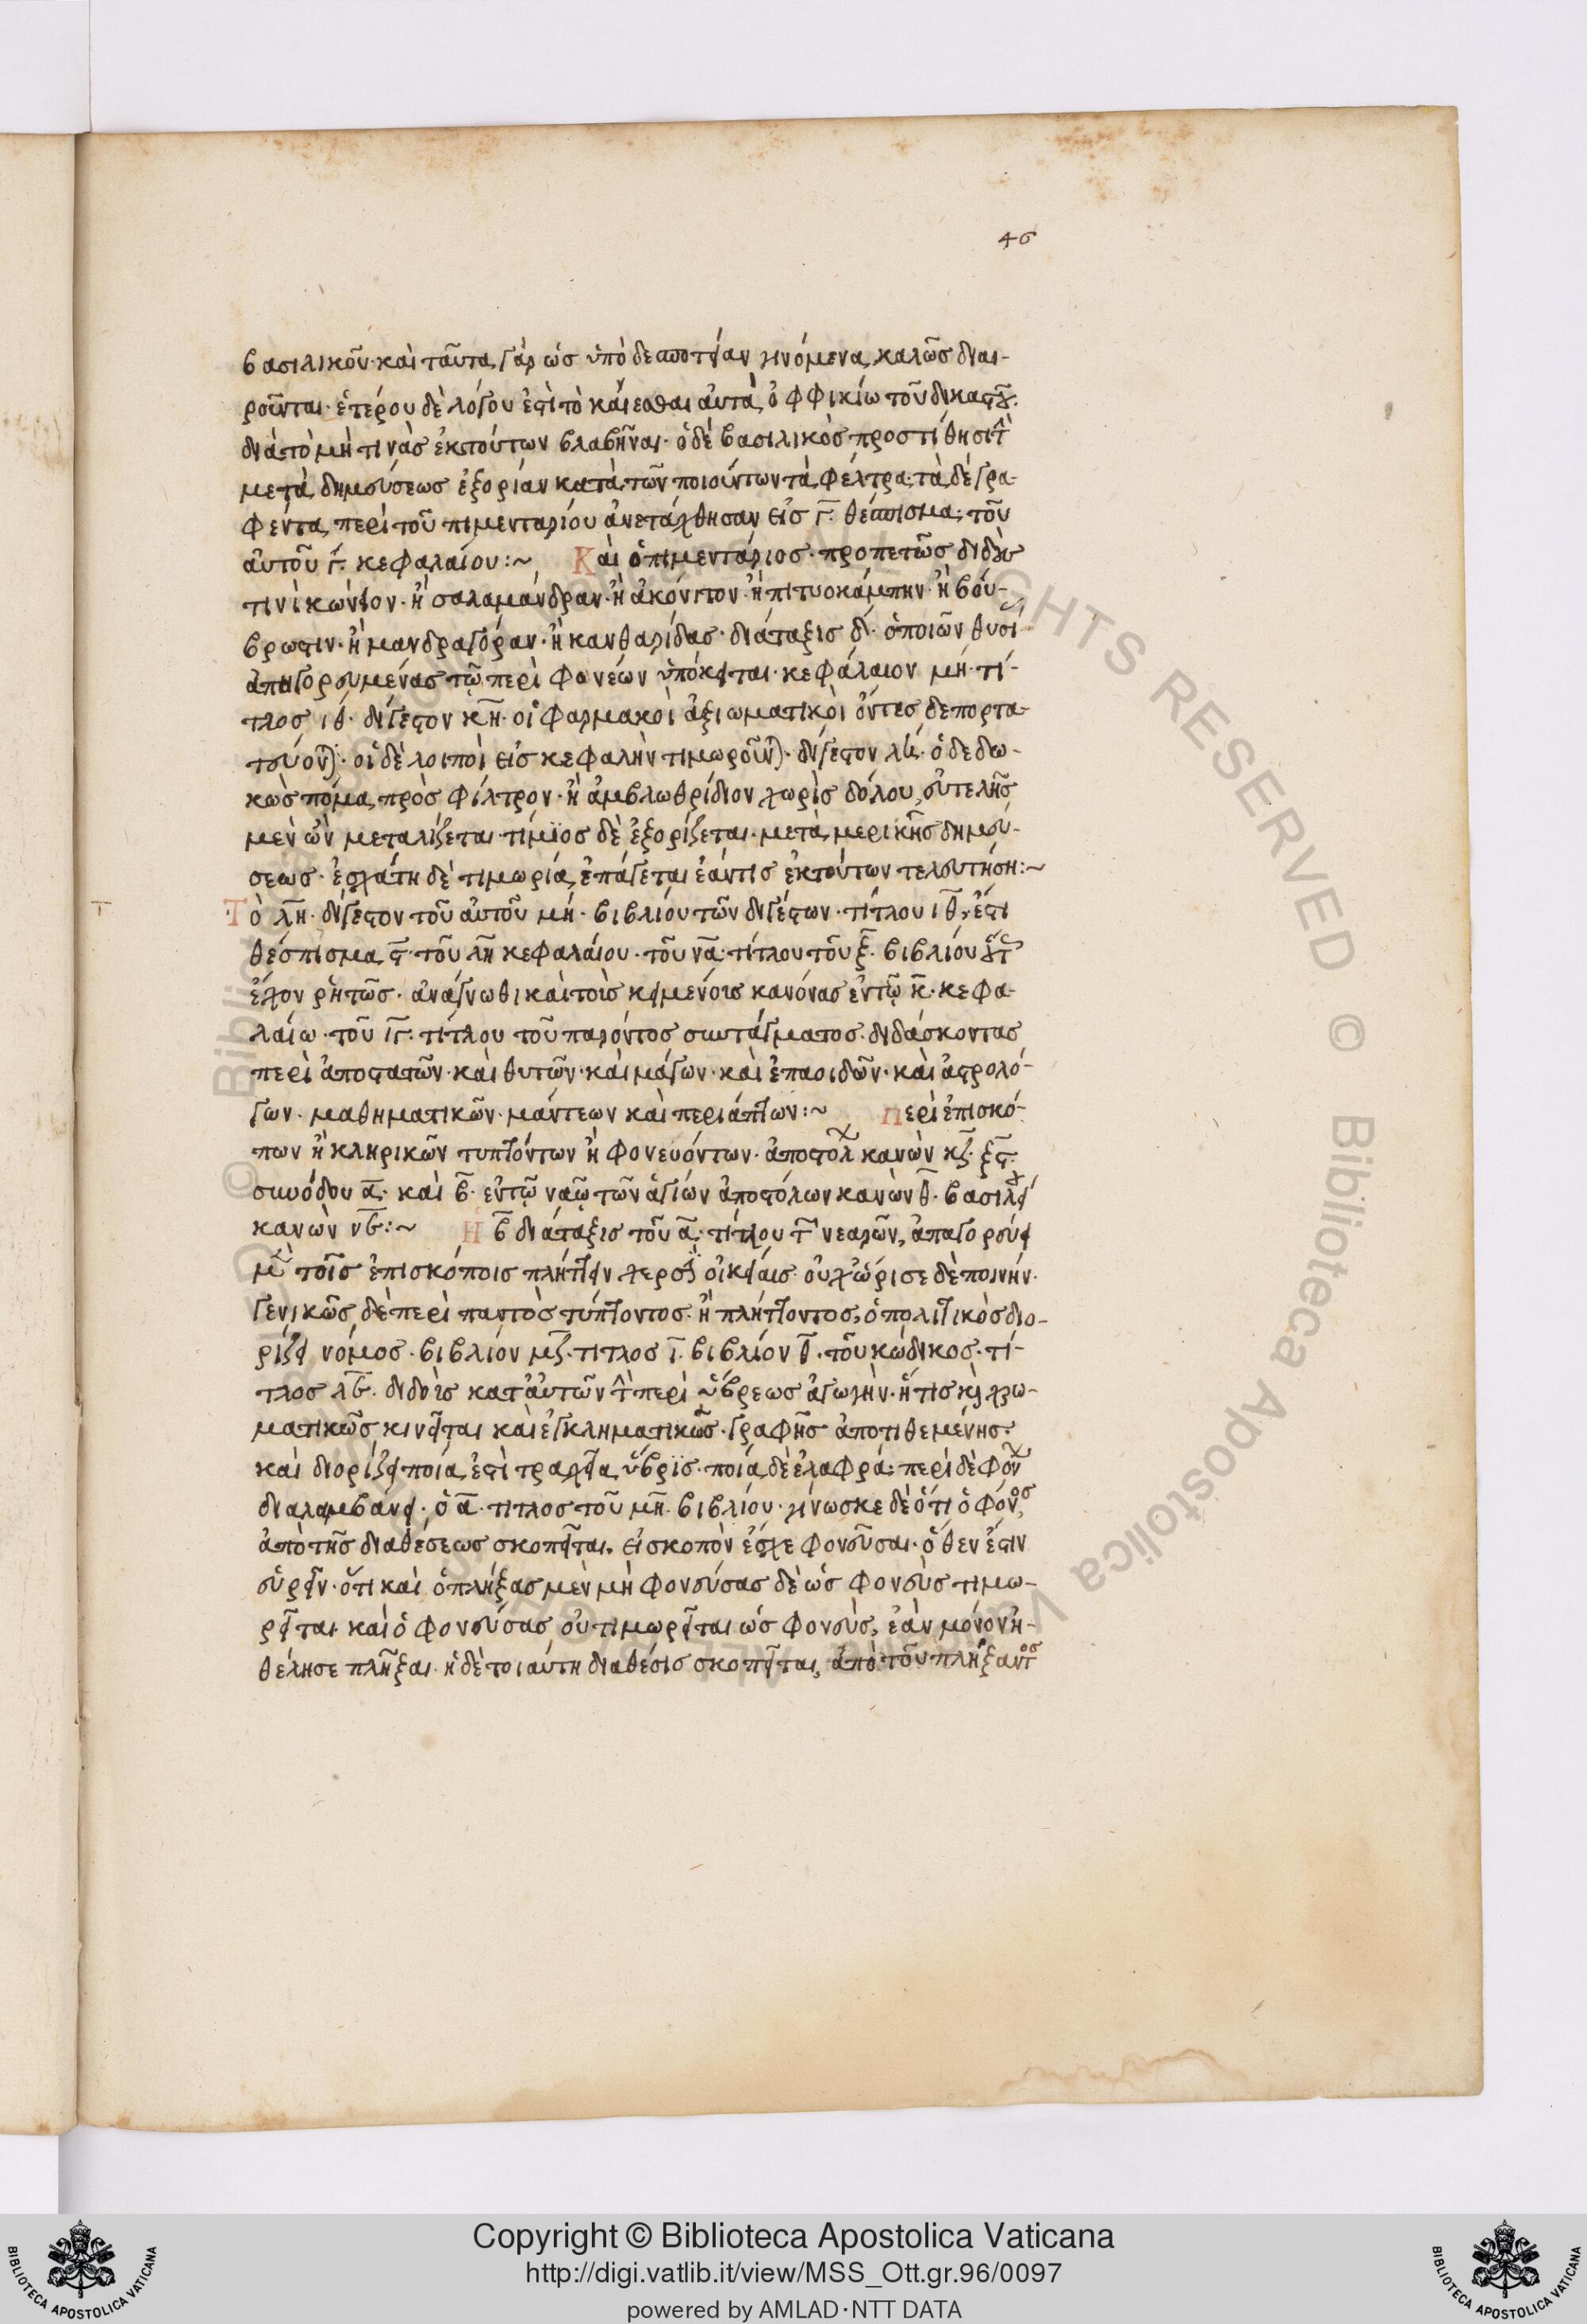 46
βασιλικοῦ· καὶ ταῦτα γὰρ ὡσ ὑπὸ δεσποτείαν γινόμενα καλῶσ διαι-
ροῦνται· ἑτέρου δὲ λόγου ἐστὶ τὸ καίεσθαι αὐτὰ ὀφφικίω τοῦ δικαστοῦ·
διὰ τὸ μή τινασ ἐκ τούτων βλαβῆναι· ὁ δὲ βασιλικὸσ προστίθησι τὸ
μετὰ δημεύσεωσ ἐξορίαν κατὰ τῶν ποιούντων τὰ φέλτρα· τὰ δὲ γρα-
φέντα περὶ τοῦ πιμενταρίου ἀνετάχθησαν εἰσ γ̅· θέσπισμα· τοῦ
αὐτοῦ γ̅· κεφαλαίου:~ Καὶ ὁ πιμεντάριοσ· προπετῶσ διδοὺσ
τινὶ κώνειον· ἢ σαλαμάνδραν· ἢ ἀκόνιτον· ἢ πιτυοκάμπην· ἢ βού-
βρωστιν· ἢ μανδραγόραν· ἢ κανθαρίδασ· διάταξισ δὲ· ὁποιῶν θυσί
ἀπηγορευμένασ τῶ περὶ φονέων ὑπόκειται· κεφάλαιον μη· τί-
τλοσ ιθ· δίγεστον κη̅· οἱ φαρμακοὶ ἀξιωματικοὶ ὄντεσ δεπορτα-
τεύονται· οἱ δὲ λοιποὶ εἰσ κεφαλὴν τιμωροῦνται· δίγεστον λη· ὁ δεδω-
κὼσ πόμα πρὸσ φίλτρον· ἢ ἀμβλωθρίδιον χωρὶσ δόλου, εὐτελὴσ
μὲν ὢν μεταλίζεται· τίμιοσ δὲ ἐξορίζεται· μετὰ μερικῆσ δημεύ-
σεωσ· ἐσχάτη δὲ τιμωρία ἐπάγεται ἐάν τισ ἐκ τούτων τελευτήση:~
Τὸ λη̅· δίγεστον τοῦ αὐτοῦ μη· βιβλίου τῶν διγέστων· τίτλου ιθ̅, ἐστὶ
θέσπισμα ϛ̅· τοῦ λη̅ κεφαλαίου· τοῦ να̅· τίτλου τοῦ ξ̅· βιβλίου οὕτωσ
ἔχον ῥητῶσ· ἀνάγνωθι καὶ τοὺσ κειμένουσ κανόνασ ἐν τῶ κ̅· κεφα-
λαίω· τοῦ ιγ̅· τίτλου τοῦ παρόντοσ συντάγματοσ· διδάσκοντασ
περὶ ἀποστατῶν· καὶ θυτῶν· καὶ μάγων· καὶ ἐπαοιδῶν· καὶ ἀστρολό-
γων· μαθηματικῶν· μάντεων καὶ περιάπτων:~ Περὶ ἐπισκό-
πων ἢ κληρικῶν τυπτόντων ἢ φονευόντων· ἀποστολ κανὼν κζ̅· ξϛ̅·
συνόδου α̅· καὶ β̅· ἐν τῶ ναῶ τῶν ἁγίων ἀποστόλων κανὼν θ̅· βασιλεί
κανὼν νβ̅:~ Ἡ β̅ διάταξισ τοῦ α̅· τίτλου τῶν νεαρῶν, ἀπαγορεύει
μὲν τοῖσ ἐπισκόποισ πλήττειν χερσὶν οἰκείαισ· οὐ χώρισε δὲ ποινήν·
γενικῶσ δὲ περὶ παντὸσ τύπτοντοσ· ἢ πλήττοντοσ, ὁ πολιτικὸσ διο-
ρίζει νόμοσ· βιβλίον μζ̅· τίτλοσ ι̅· βιβλίον θ̅· τοῦ κώδικοσ· τί-
τλοσ λβ̅· διδοὺσ κατ αὐτῶν τὴν περὶ ὕβρεωσ ἀγωγὴν· ἥτισ καὶ χρω-
ματικῶσ κινεῖται καὶ ἐγκληματικῶσ· γραφῆσ ἀποτιθεμένησ·
καὶ διορίζει ποία ἐστὶ τραχεῖα ὕβρισ· ποία δὲ ἐλαφρά· περὶ δὲ φόνου
διαλαμβάνει· ὁ α̅· τίτλοσ τοῦ μη̅· βιβλίου· γίνωσκε δὲ ὅτι ὁ φόνοσ,
ἀπὸ τῆσ διαθέσεωσ σκοπεῖται, εἰ σκοπὸν ἔσχε φονεῦσαι· ὅθεν ἔστιν
εὑρεῖν· ὅτι καὶ ὁ πλήξασ μὲν μὴ φονεύσασ δὲ ὡσ φονεὺσ τιμω-
ρεῖται· καὶ ὁ φονεύσασ οὐ τιμωρεῖται ὡσ φονεὺσ, ἐὰν μόνον ἠ-
θέλησε πλῆξαι· ἡ δὲ τοιαύτη διάθεσισ σκοπεῖται, ἀπὸ τοῦ πλήξαντοσ
Τ
© Biblioteca Apostolica Vaticana ALL RIGHTS RESERVED
Copyright © Biblioteca Apostolica Vaticana
http://digi.vatlib.it/view/MSS_Ott.gr.96/0097
powered by AMLAD·NTT DATA
BIBLIOTECA APOSTOLICA VATICANA
BIBLIOTECA APOSTOLICA VATICANA